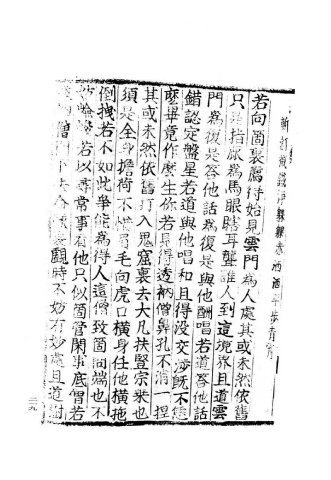 斬釘截鐵淨躶躶赤洒洒平步青霄
若向箇裏薦得始見雲門為人處其或未然依舊
只是指鹿為馬眼瞎耳聾誰人到這境界且道雲
門為復是答他話為復是與他酬唱若道答他話
錯認定盤星若道與他唱和且得沒交涉既不恁
麼畢竟作麼生你若見得透衲僧鼻孔不消一捏
其或未然依舊打入鬼窟裏去大凡扶竪宗乘也
須是全身擔荷不惜眉毛向虎口橫身任他橫拖
倒拽若不如此爭能為得人這僧致箇問端也不
妨嶮峻若以尋常事看他只似箇管閑事底僧若
僧門下去命脉裏覷時不妨有妙處且道樹